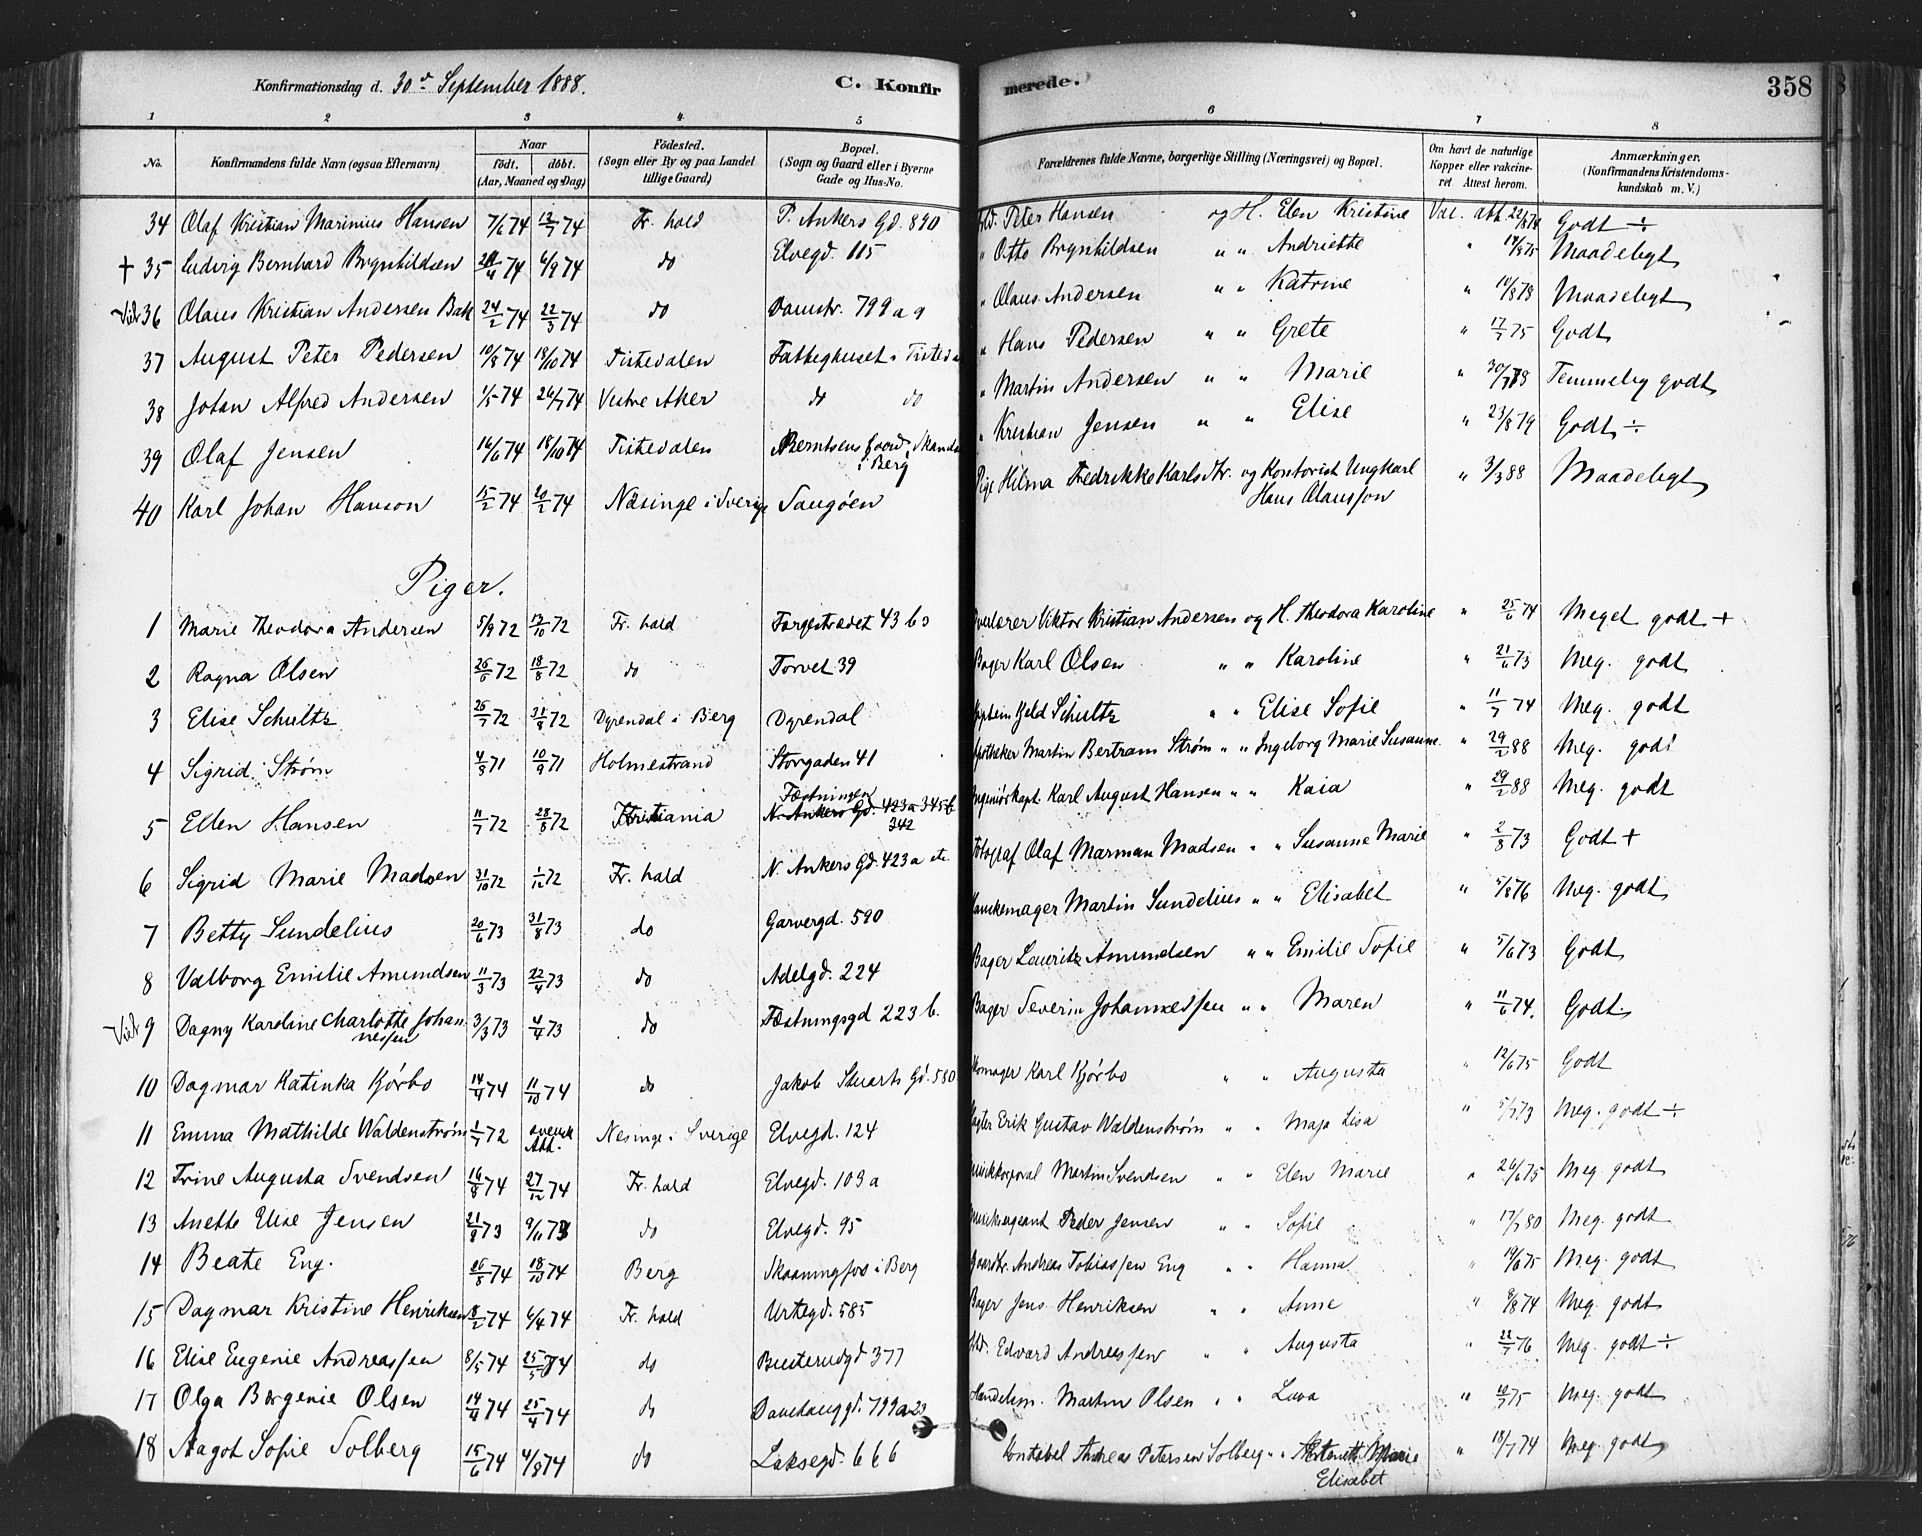 Konfirmationsdag d. 30te September 1888. C. Konfirmerede. 358
1 2 3 4 5 6 7 8
No. Konfirmandens fulde Navn (ogsaa Efternavn) Naar født. døbt. (Aar, Maaned og Dag) Födested. (Sogn eller By og paa Landet tillige Gaard) Bopæl. (Sogn og Gaard eller i Byerne Gade og Hus-No. Forældrenes fulde Navne, borgerlige Stilling (Næringsvei) og Bopæl. Om havt de naturlige Kopper eller vakcineret. Attest herom. Anmærkninger. (Konfirmandens Kristendomskundskab m. V.)
34 Olaf Kristian Marinius Hansen 7/6 74 12/7 74 Fr. hald P. Ankers Gd. 890 Peter Hansen og H. Elen Kristine Vac. att. 22/8 74 Godt ÷
+ 35 Ludvig Bernhard Brynhildsen 74 6/9 74 do Elvegd. 115 " Otto Brynhildsen " " Andriette " 14/9 75 Maadeligt
36 Olaus Kristian Andersen Bak 24/2 74 22/3 74 do Damstr. 799 a 9 " Olaus Andersen " " Katrine " 10/8 78 Maadeligt
37 August Peter Pedersen 10/8 74 18/10 74 Tistedalen Fattighuset i Tisteda " Hans Pedersen " " Grete " 17/7 75 Godt
38 Johan Alfred Andersen 1/5 74 26/7 74 Vestre Aker do do " Martin Andersen " " Marie " 30/7 78 Temmelig godt
39 Olaf Jensen 16/6 74 18/10 74 Tistedalen Berntsens Gaard i Berg " Kristian Jensen " " Elise " 23/8 79 Godt ÷
40 Karl Johan Hanson 15/2 74 20/2 74 Næsinge i Sverige Saugöen Pige Hilma Fredrikke Karlsdtr. og Kontorist Ungkarl Hans Olausson " 3/3 88 Maadeligt
Piger.
1 Marie Theodora Andersen 5/9 72 13/10 72 Fr. hald Torgstrædet 43 b Viktor Kristian Andersen og H. Theodora Karoline " 25/6 74 Meget godt +
2 Ragna Olsen 26/6 72 18/8 72 do Torvet 39 Bager Karl Olsen " " Karoline " 21/6 73 Meg. godt
3 Elise Schultz 26/7 72 31/8 72 Dyrendal i Berg Dyrendal Schultz " " Elise Sofie " 11/7 74 Meg. godt
4 Sigrid Strøm 4/8 71 10/9 71 Holmestrand Storgaden 41 Apotheker Martin Bertram Strøm " " Ingeborg Marie Susanne " 29/2 88 Meg. godt
5 Ellen Hansen 11/7 72 28/8 72 Kristiania Fæstningen N. Ankers Gd. 423a 345b 342 Ingeniörkapt. Karl August Hansen " " Kaia " 29/2 88 Meg. godt
6 Sigrid Marie Madsen 31/10 72 1/12 72 Fr. hald N. Ankers Gd. 423a Fotograf Olaf Marman Madsen " " Susanne Marie " 2/8 73 Godt +
7 Betty Sundelius 20/6 73 31/8 73 do Garvergd. 590 Martin Sundelius " " Elisabet " 5/8 76 Meg. godt
8 Valborg Emilie Amundsen 11/3 73 22/4 73 do Adelgd. 224 Bager Lauritz Amundsen " " Emilie Sofie " 5/6 73 Godt
9 Dagny Karoline Charlotte Johannessen 3/3 73 4/4 73 do Fæstningsgd 223 b. Bager Severin Johannessen " " Maren " 11/6 74. Godt.
10 Dagmar Katinka Kjörbo 14/4 74 11/10 74 do Jakob Stuarts Gd. 580 Karl Kjörbo " " Augusta " 12/6 75 Godt
11 Emma Mathilde Waldenström 1/7 72 svensk Att. Nesinge i Sverige Elvegd. 124 Erik Gustav Waldenström " " Maja Lisa " 5/7 73 Meg. godt ÷
12 Trine Augusta Svendsen 16/8 74 27/12 74 Fr. hald Elvegd. 103 a Musikkorporal Martin Svendsen " " Elen Marie " 26/6 75 Meg. godt
13 Anette Elise Jensen 21/9 73 9/11 73 do Elvegd. 95 Musiksergeant Peder Jensen " " Sofie " 17/7 80 Meg. godt
14 Beate Eng. 26/8 74 18/10 74 Berg Skaaningfos i Berg Andreas Tobiassen Eng " " Hanna " 19/6 75 Meg. godt
15 Dagmar Kristine Henriksen 8/2 74 6/4 74 Fr. hald Urtegd. 585 Bager Jens Henriksen " " Anne " 8/8 74 Meg. godt
16 Elise Eugenie Andreassen 8/5 74 25/5 74 do Busterudgd 377 Edvard Andreassen " " Augusta " 22/7 76 Meg. godt ÷
17 Olga Borgenie Olsen 14/4 74 25/4 74 do 799a 23 Handelsm. Martin Olsen " " Lova " 75 Meg. godt
18 Aagot Sofie Solberg 15/6 74 4/8 74 do Laksegd. 666 Konstabel Andreas Petersen Solberg " " Antonette Marie Elisabet " 18/7 74 Meg. godt